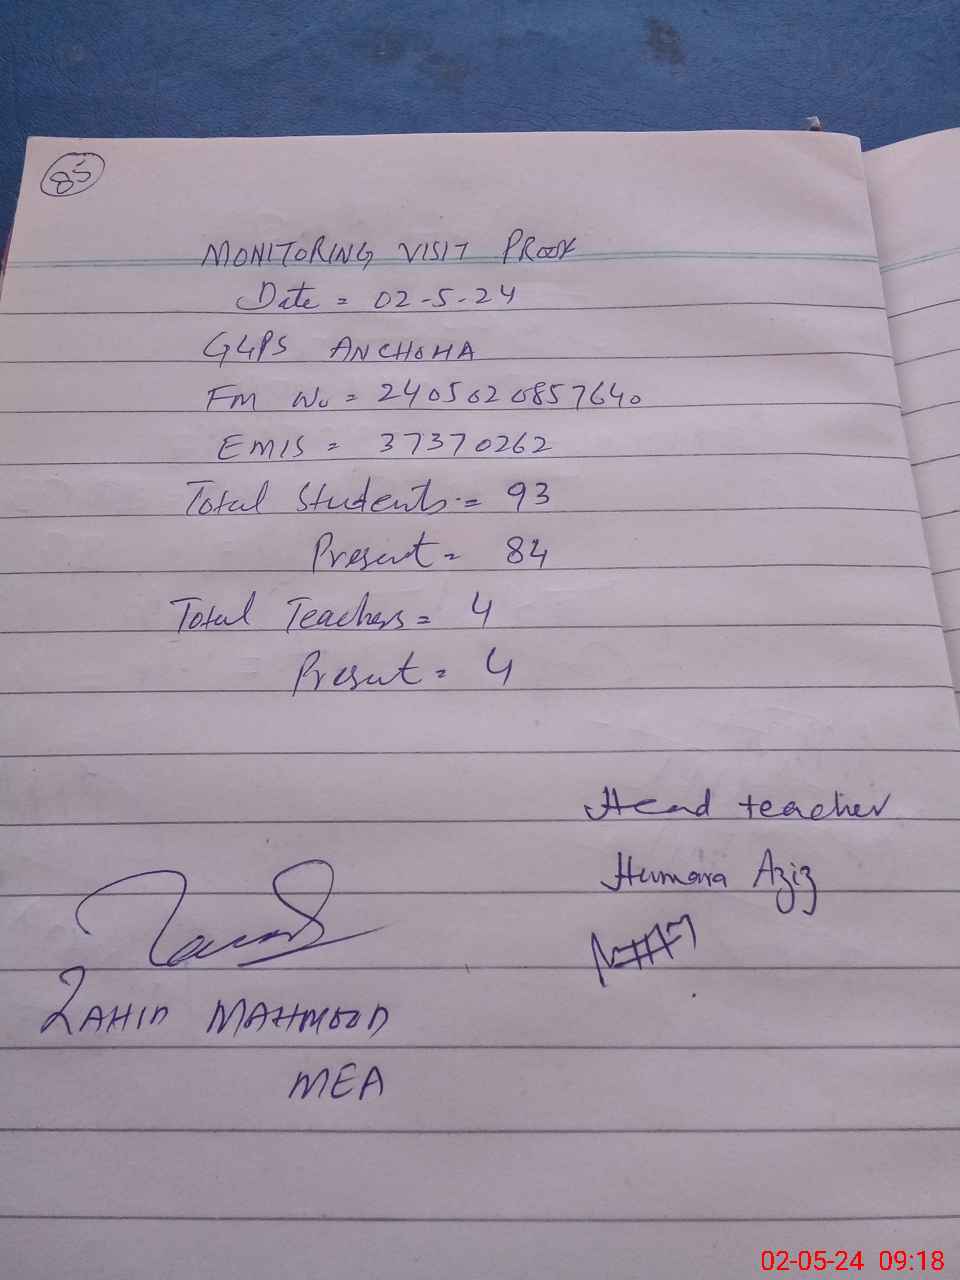 85
MONITORING VISIT PROOF
Date = 02-5-24
GGPS ANCHOHA
FM No = 2405020857640
EMIS = 37370262
Total Students = 93
Present = 84
Total Teachers = 4
Present = 4
Head teacher
Humara Aziz
ZAHID MAHMOOD
MEA
02-05-24 09:18